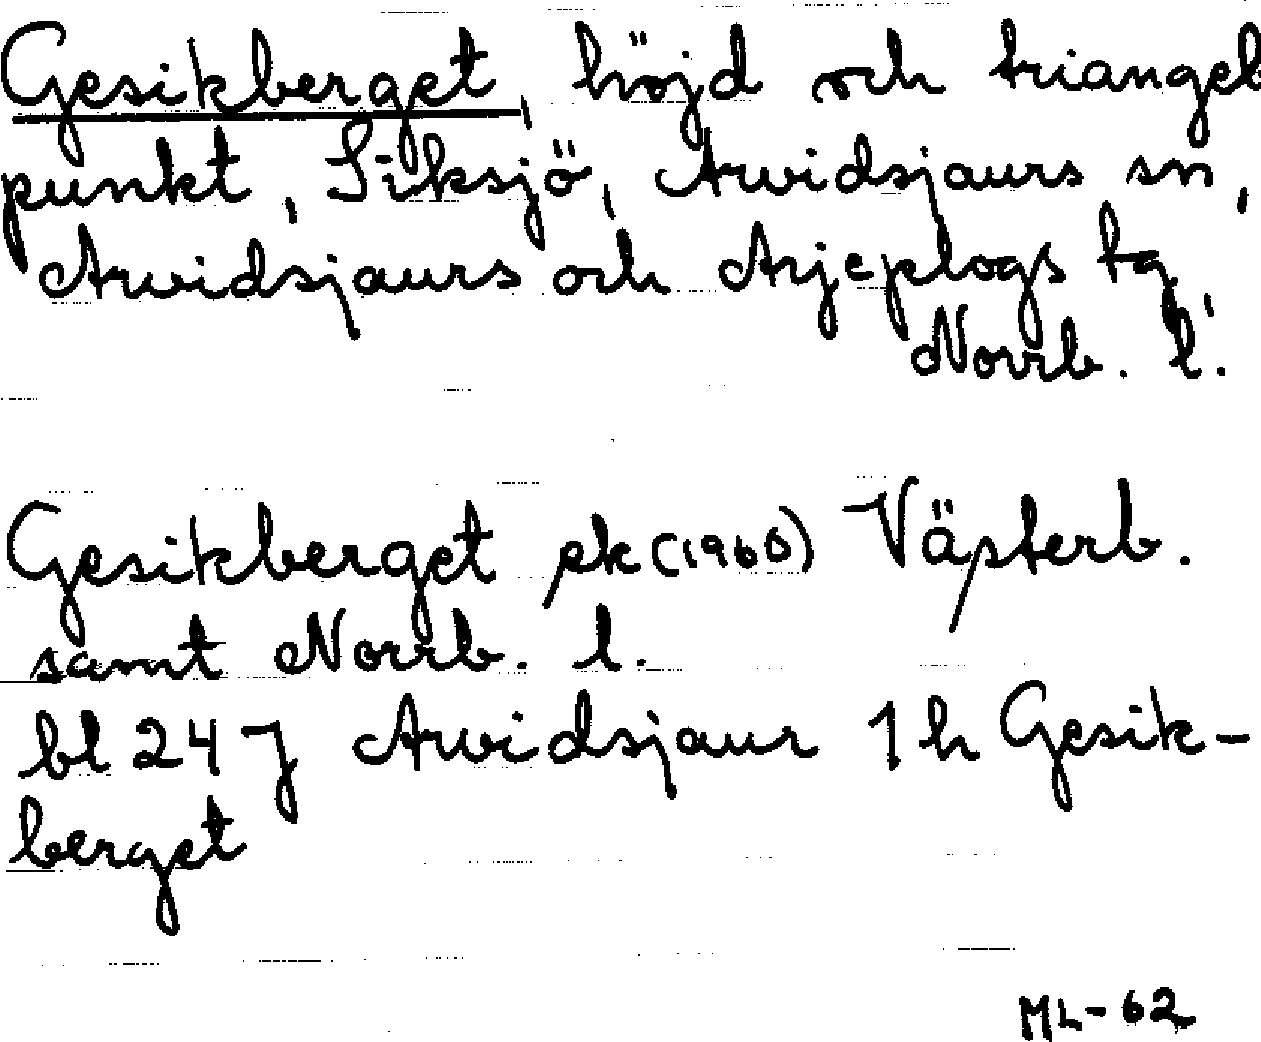 Gesikberget, höjd och triangel
punkt, Siksjö, Arvidsjaurs sn,
Arvidsjaurs och Arjeplogs tg,
Norrb. l.
Gesikberget ek (1960) Västerb.
samt Norrb. l.
bl 24 J Arvidsjaur 1 h Gesik-
berget
ML-62